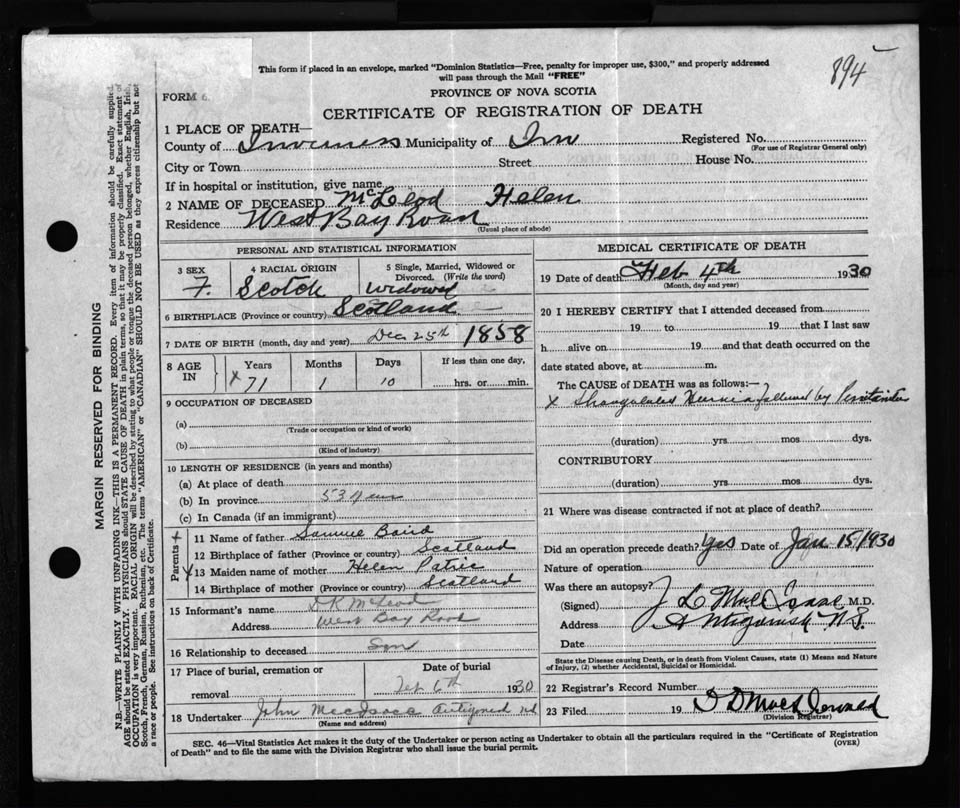 894
This form if placed in an envelope, marked "Dominion Statistics—Free, penalty for improper use, $300," and properly addressed
will pass through the Mail "FREE"
PROVINCE OF NOVA SCOTIA
FORM 6.
CERTIFICATE OF REGISTRATION OF DEATH
1 PLACE OF DEATH—
County of Inverness Municipality of Inv Registered No.
(For use of Registrar General only)
City or Town Street House No.
If in hospital or institution, give name
2 NAME OF DECEASED McLeod Helen
Residence West Bay Road
(Usual place of abode)
PERSONAL AND STATISTICAL INFORMATION
3 SEX 4 RACIAL ORIGIN 5 Single, Married, Widowed or
Divorced. (Write the word)
F. Scotch Widowed
6 BIRTHPLACE (Province or country) Scotland
7 DATE OF BIRTH (month, day and year) Dec 25th 1858
8 AGE IN Years Months Days If less than one day,
x 71 1 10 hrs. or min.
9 OCCUPATION OF DECEASED
(a)
(Trade or occupation or kind of work)
(b)
(Kind of industry)
10 LENGTH OF RESIDENCE (in years and months)
(a) At place of death
(b) In province 53 Years
(c) In Canada (if an immigrant)
Parents
11 Name of father Samuel Baird
12 Birthplace of father (Province or country) Scotland
13 Maiden name of mother Helen Patric
14 Birthplace of mother (Province or country) Scotland
15 Informant's name D R McLeod
Address West Bay Road
16 Relationship to deceased Son
17 Place of burial, cremation or Date of burial
removal Feb 6th 1930
18 Undertaker John MacIsaac
(Name and address)
MEDICAL CERTIFICATE OF DEATH
19 Date of death Feb 4th 1930
(Month, day and year)
20 I HEREBY CERTIFY that I attended deceased from
19 to 19 that I last saw
h alive on 19 and that death occurred on the
date stated above, at m.
The CAUSE OF DEATH was as follows:—
x Strangulated Hernia followed by Peritonitis
(duration) yrs mos dys.
CONTRIBUTORY
(duration) yrs. mos. dys.
21 Where was disease contracted if not at place of death?
Did an operation precede death? Yes Date of Jan 15/1930
Nature of operation
Was there an autopsy?
(Signed) J L MacIsaac M.D.
Address Antigonish N.S.
Date
State the Disease causing Death, or in death from Violent Causes, state (1) Means and Nature
of Injury, (2) whether Accidental, Suicidal or Homicidal.
22 Registrar's Record Number
23 Filed 19
(Division Registrar)
SEC. 46—Vital Statistics Act makes it the duty of the Undertaker or person acting as Undertaker to obtain all the particulars required in the "Certificate of Registration
of Death" and to file the same with the Division Registrar who shall issue the burial permit. (OVER)
MARGIN RESERVED FOR BINDING
N.B.—WRITE PLAINLY WITH UNFADING INK—THIS IS A PERMANENT RECORD. Every item of information should be carefully supplied.
AGE should be stated EXACTLY. PHYSICIANS should STATE CAUSE OF DEATH in plain terms, so that it may be properly classified. Exact statement of
OCCUPATION is very important. RACIAL ORIGIN will be described by stating to what people or tongue the deceased person belonged, whether English, Irish,
Scotch, French, German, Russian, Ruthenian, etc. The terms "AMERICAN" or "CANADIAN" SHOULD NOT BE USED as they express citizenship but not
a race or people. See instructions on back of Certificate.